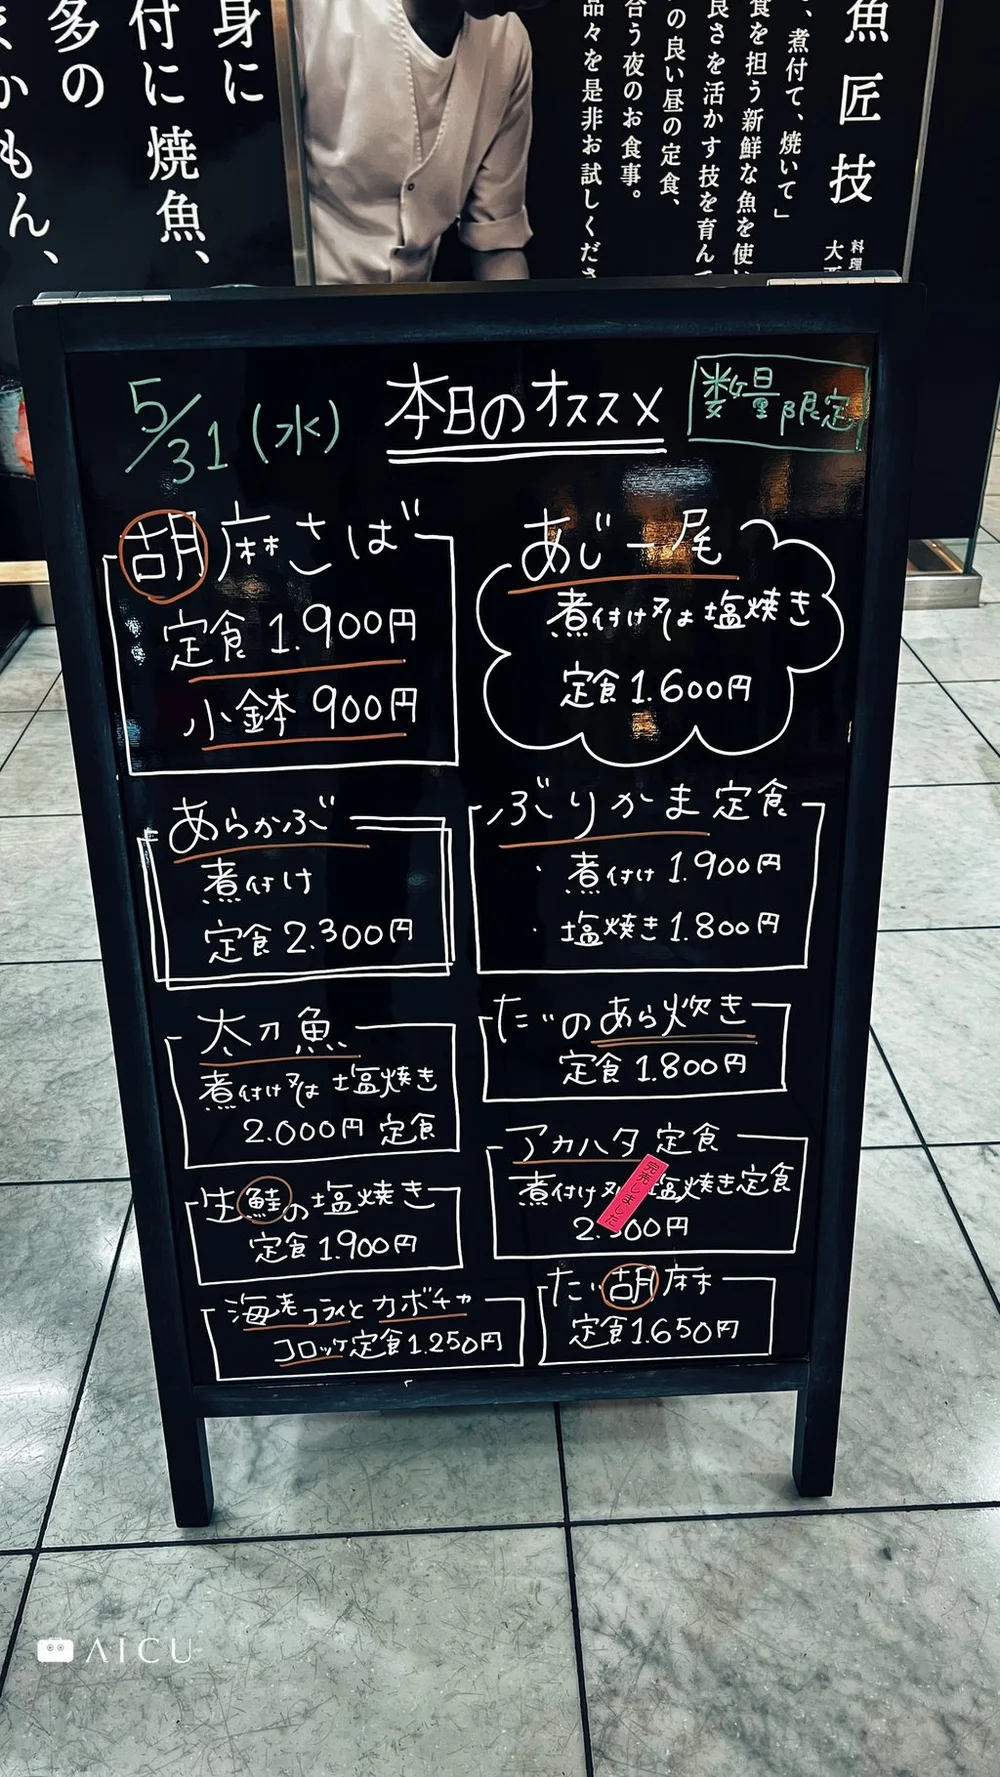 身に
付に 焼魚、
多の
かもん、
魚匠技
、煮付て、焼いて」
食を担う新鮮な魚を使い
良さを活かす技を育んで
の良い昼の定食、
合う夜のお食事。
品々を是非お試しくださ
料理
大
5/31(水)
本日のオススメ
数量限定
胡麻さば
定食 1.900円
小鉢 900円
あじ一尾
煮付け又は塩焼き
定食 1.600円
あらかぶ
煮付け
定食 2.300円
ぶりかま定食
・煮付け 1.900円
・塩焼き 1.800円
太刀魚
煮付け又は 塩焼き
2.000円 定食
たいのあら炊き
定食 1.800円
アカハタ 定食
煮付け又は塩焼き定食
2.300円
完売しました
生鮭の塩焼き
定食 1.900円
海老フライとカボチャ
コロッケ定食 1.250円
たい胡麻
定食 1.650円
AICU